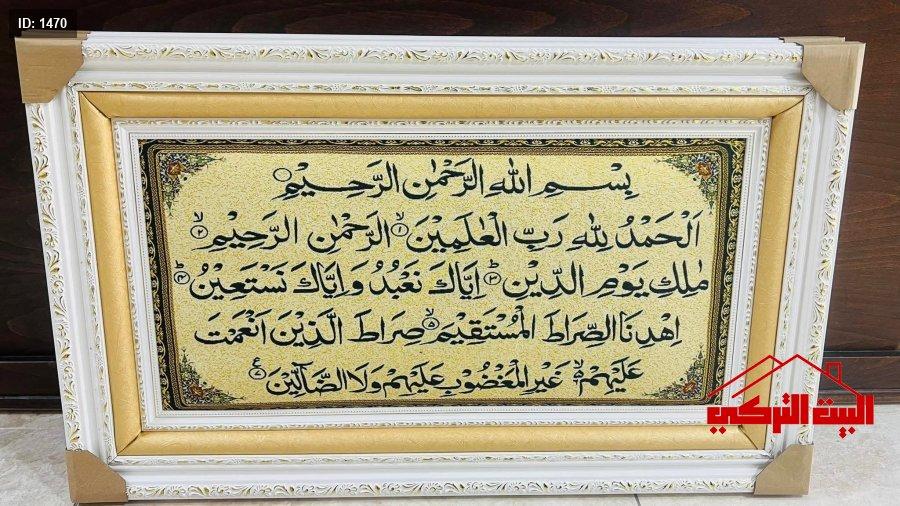 ID: 1470
بِسْمِ اللهِ الرَّحْمٰنِ الرَّحِيْمِ
اَلْحَمْدُ لِلّٰهِ رَبِّ الْعٰلَمِيْنَ ۙ۱ الرَّحْمٰنِ الرَّحِيْمِ ۙ۲
مٰلِكِ يَوْمِ الدِّيْنِ ۳ اِيَّاكَ نَعْبُدُ وَاِيَّاكَ نَسْتَعِيْنُ ۴
اِهْدِنَا الصِّرَاطَ الْمُسْتَقِيْمَ ۙ۵ صِرَاطَ الَّذِيْنَ اَنْعَمْتَ
عَلَيْهِمْ ۙ۶ غَيْرِ الْمَغْضُوْبِ عَلَيْهِمْ وَلَا الضَّآلِّيْنَ
البيت التركي